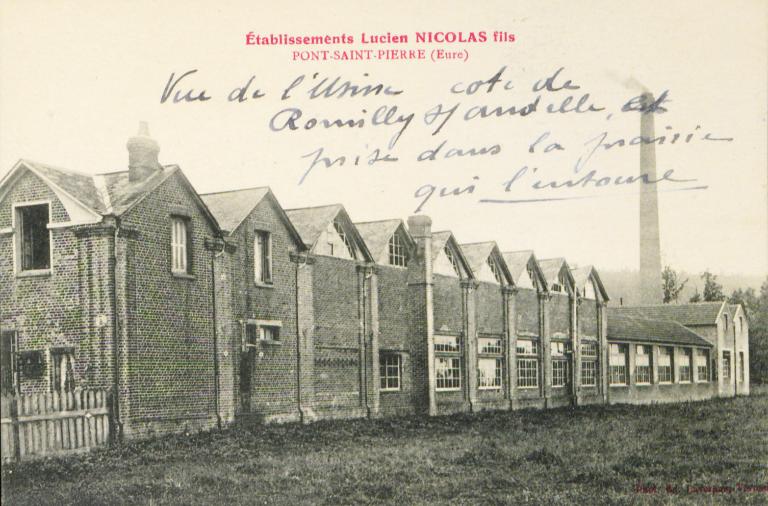 Établissements Lucien NICOLAS fils
PONT-SAINT-PIERRE (Eure)
Vue de l'Usine cote de
Romilly s/ andelle, et
prise dans la prairie
qui l'entoure